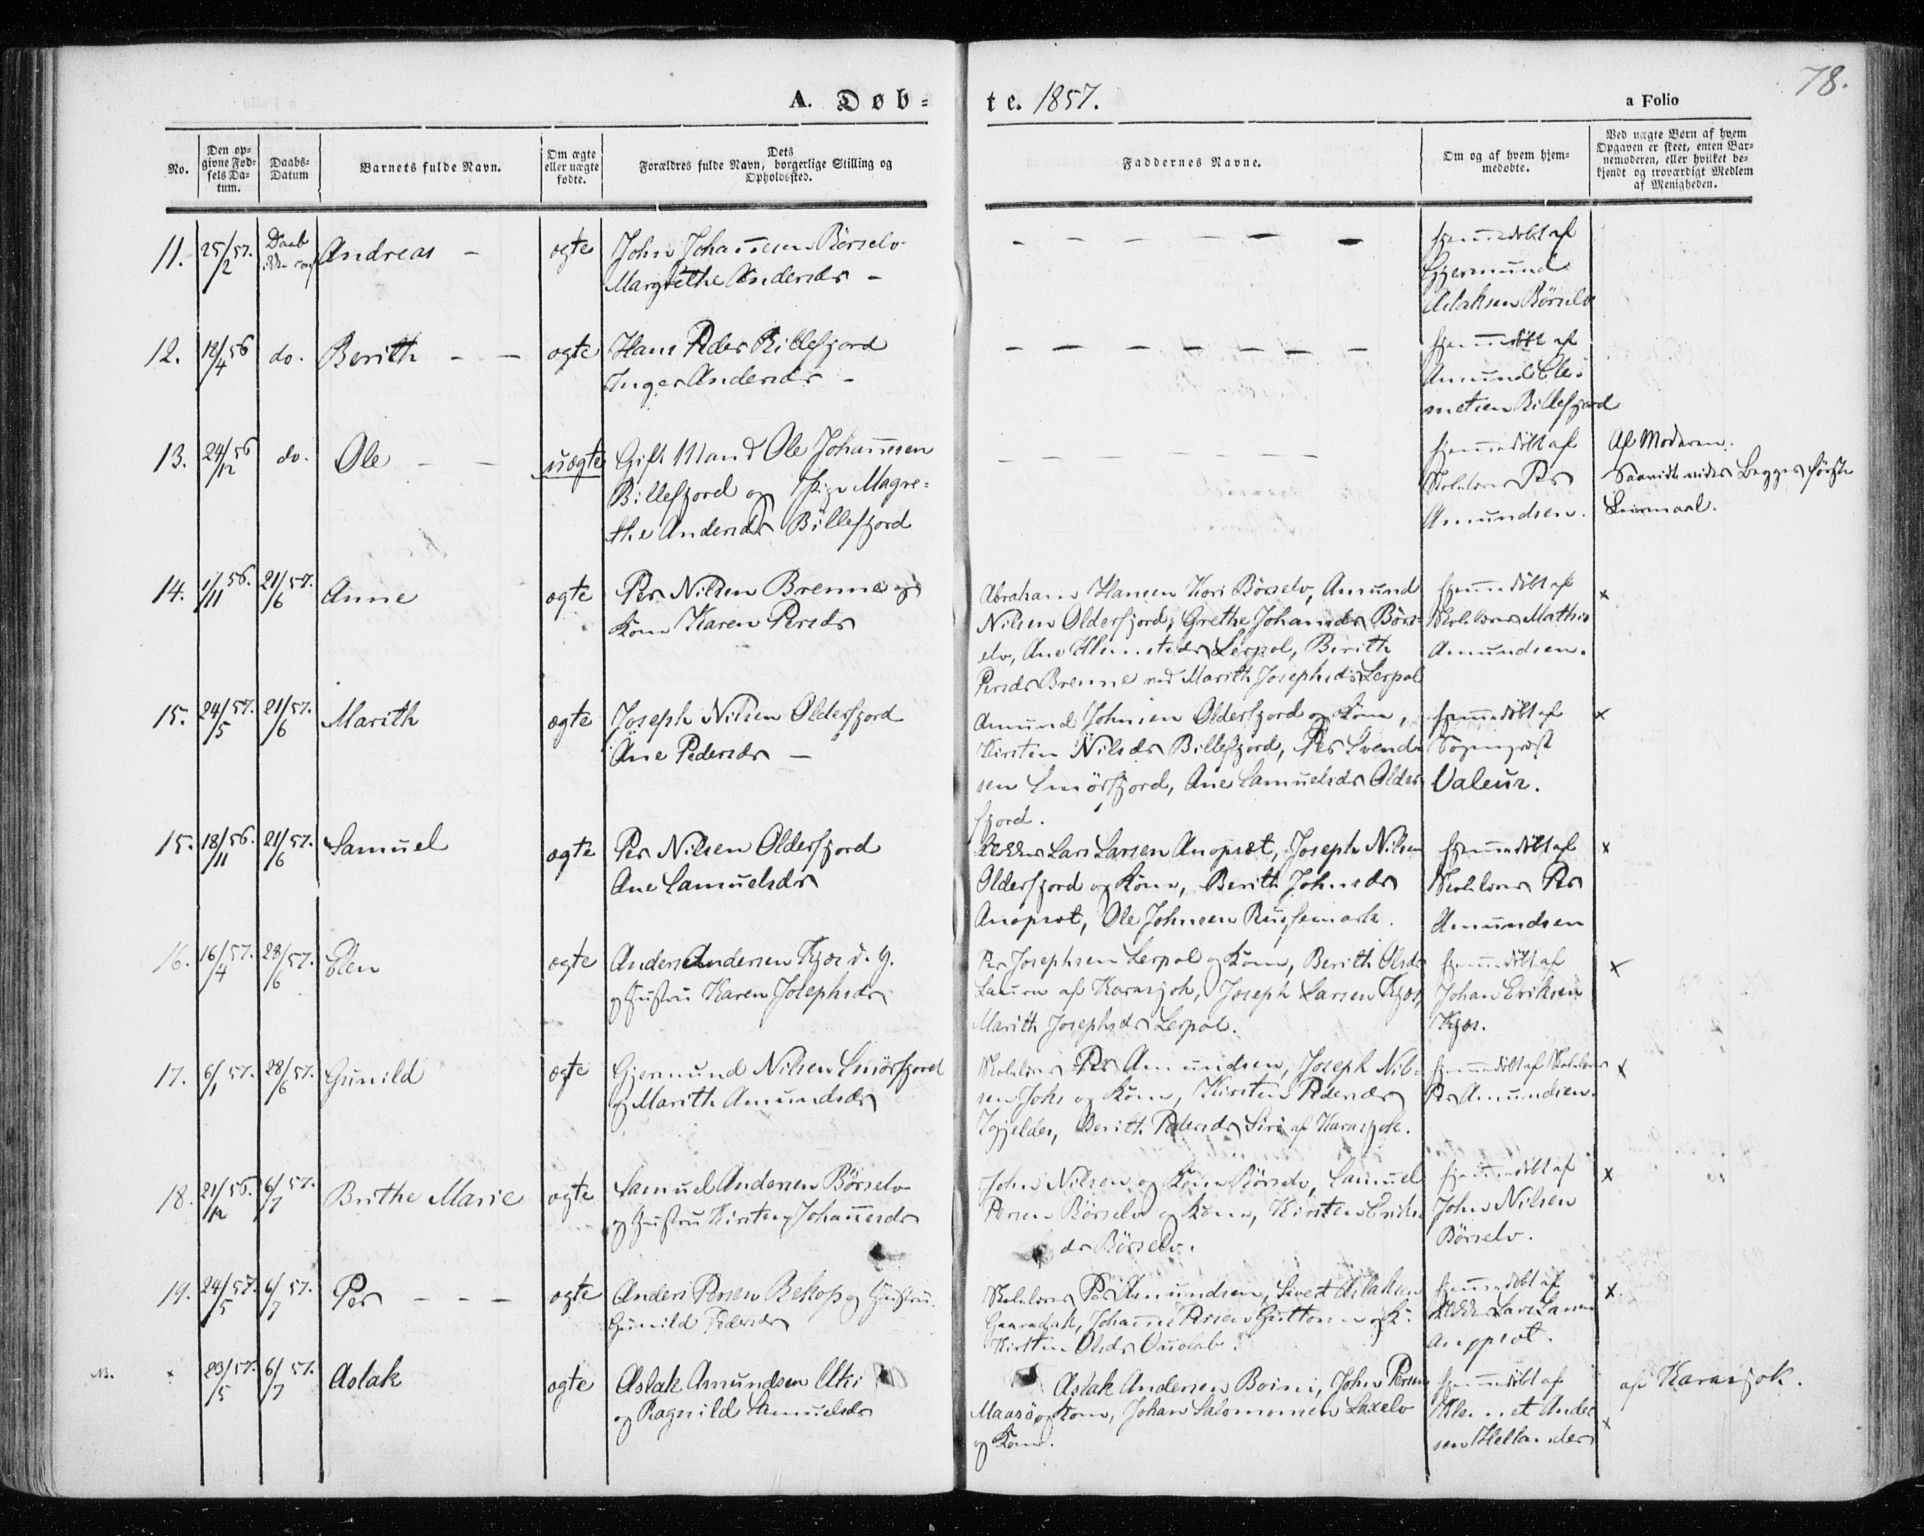 78.
A. Døb=
te. 1857.
a Folio
No.
Den op-
givne Fød-
sels Da-
tum.
Daabs-
Datum
Barnets fulde Navn.
Om ægte
eller uægte
fødte.
Dets
Forældres fulde Navn, borgerlige Stilling og
Opholdssted.
Faddernes Navne.
Om og af hvem hjem-
medøbte.
Ved uægte Børn af hvem
Opgaven er skeet, enten Bar-
nemoderen, eller hvilket be-
kjendt og troværdigt Medlem
af Menigheden.
11. 25/2 57. Daab Andreas - ægte John Johannesen Börselv
Margrethe Andersdr -
hjemmedöbt af
Gjermund
Aslaksen Börselv
12. 18/4 56 do. Berith - - ægte Hans Peder Billefjord
Inger Andersdr -
hjemmedöbt af
Amund Cle-
metsen Billefjord
13. 24/12 56 do. Ole - - uægte Gift Mand Ole Johannesen
Billefjord og Pige Magre-
the Andersdr Billefjord
hjemmedöbt af
Skolelærer Per
Amundsen.
Af Moderen.
Saavidt vides Begges første
Leiermaal.
14. 1/11 56. 21/6 57. Anne ægte Per Nilsen Brenne og
Kone Karen Persdr
Abraham Hansen Kori Börselv, Amund
Nilsen Olderfjord, Grethe Johansdr Börs-
elv, Ane Klemetsdr Lerpol, Berith
Persdr Brenne og Marith Josephsdr Lerpol
hjemmedöbt af
Skolelærer Mathis
Amundsen.
x
15. 24/5 57. 21/6 57. Marith ægte Joseph Nilsen Olderfjord
Ane Pedersdr -
Amund Johnsen Olderfjord og Kone,
Kirsten Nilsdr Billefjord, Per Svend-
sen Smörfjord, Ane Samuelsdr Older-
fjord.
hjemmedöbt af
Sognepræst
Valeur.
x
15. 18/11 56. 21/6 57. Samuel ægte Per Nilsen Olderfjord
Ane Samuelsdr
Lars Larsen Anopsæt, Joseph Nilsen
Olderfjord og Kone, Berith Johnsdr
Anopsæt, Ole Johnsen Russemark.
hjemmedöbt af
Skolelærer Per
Amundsen
x
16. 16/4 57. 28/6 57. Elen ægte Anders Andersen Kjæs d. y.
og Hustru Karen Josephsdr
Per Josephsen Lerpol og Kone, Berith Olsdr
Laura af Karasjok, Joseph Larsen Kjæs,
Marith Josephsdr Lerpol.
hjemmedöbt af
Johan Eriksen
Kjæs.
x
17. 6/1 57. 28/6 57. Gunild ægte Gjermund Nilsen Smörfjord
og Marith Amundsdr
Skolelærer Per Amundsen, Joseph Nil-
sen Joks og Kone, Kirsten Pedersdr
Igjeldas, Berith Pedersdr Siri af Karasjok.
hjemmedöbt af Skolelærer
Per Amundsen.
x
18. 21/12 56. 6/7 57. Brithe Marie ægte Samuel Andersen Börselv
og Hustru Kirsten Johannesdr
John Nilsen og Kone Börselv, Samuel
Persen Börselv og Kone, Kirsten Eriks-
dr Börselv.
hjemmedöbt af
John Nilsen
Börselv.
x
19. 24/5 57. 6/7 57. Per - - - ægte Anders Persen Bekop og Hustru
Gunild Pedersdr
Skolelærer Per Amundsen, Sivert Aslaksen
Gaaradak, Johannes Persen Guttorm og K.
Kirsten Olsdr
hjemmedöbt af
Lars Larsen
Anopsæt.
x
NB. x 23/5 57. 6/7 57. Aslak ægte Aslak Amundsen Utsi
og Ragnild Samuelsdr
Aslak Andersen Boini, John Persen
Maasö og Kone, Johan Salomonsen Laxelv
og Kone.
hjemmedöbt af
Klemet Ander-
sen Hellander
x
af Karasjok.